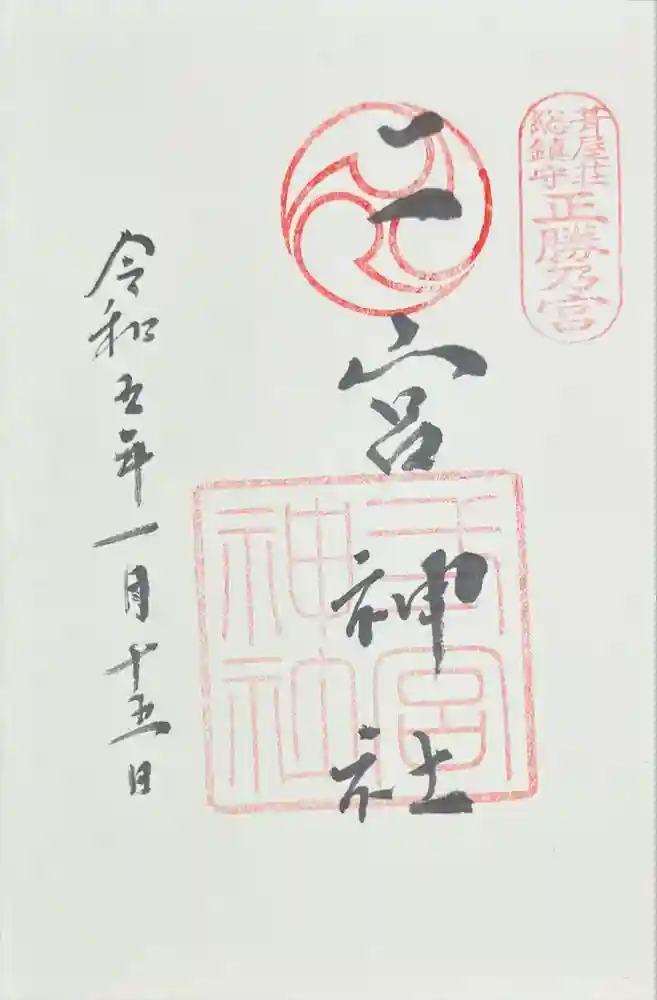 葺屋荘
総鎮守
正勝乃宮
二宮神社
宮
神社
令和五年一月十五日